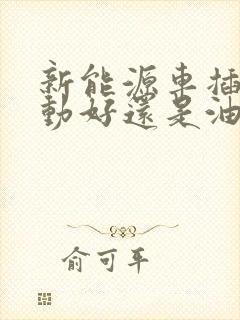 新能源車插
動好還是油
俞可平